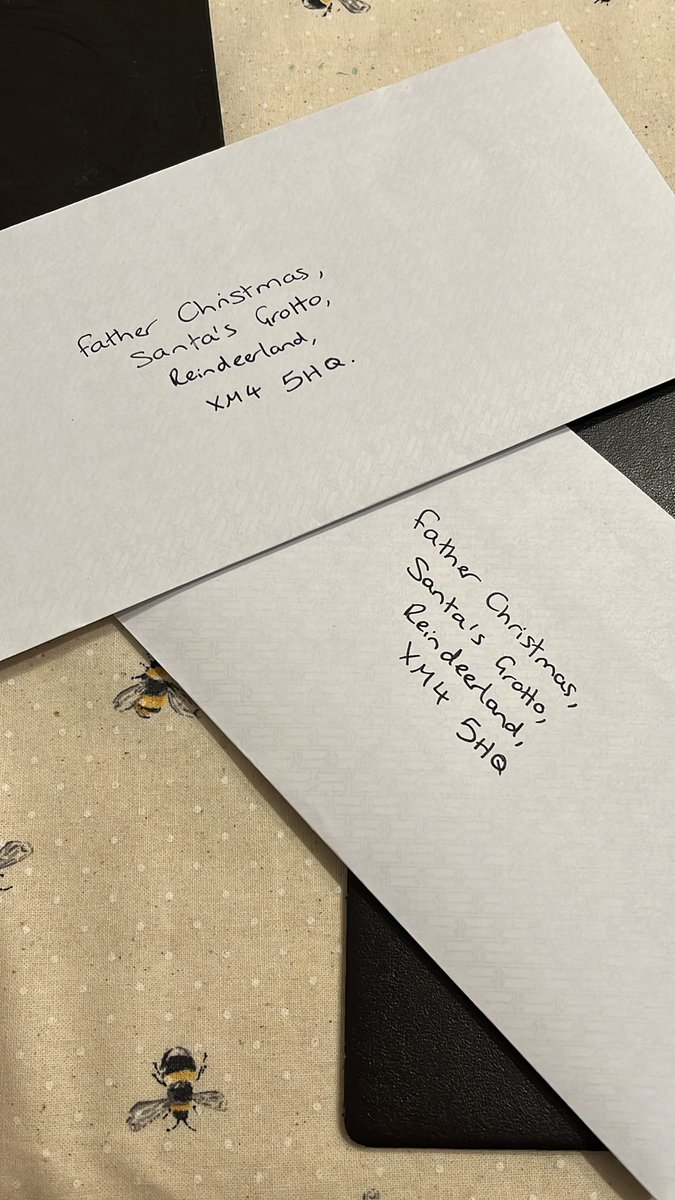 Father Christmas,
Santa's Grotto,
Reindeerland,
XM4 5HQ.
Father Christmas,
Santa's Grotto,
Reindeerland,
XM4 5HQ